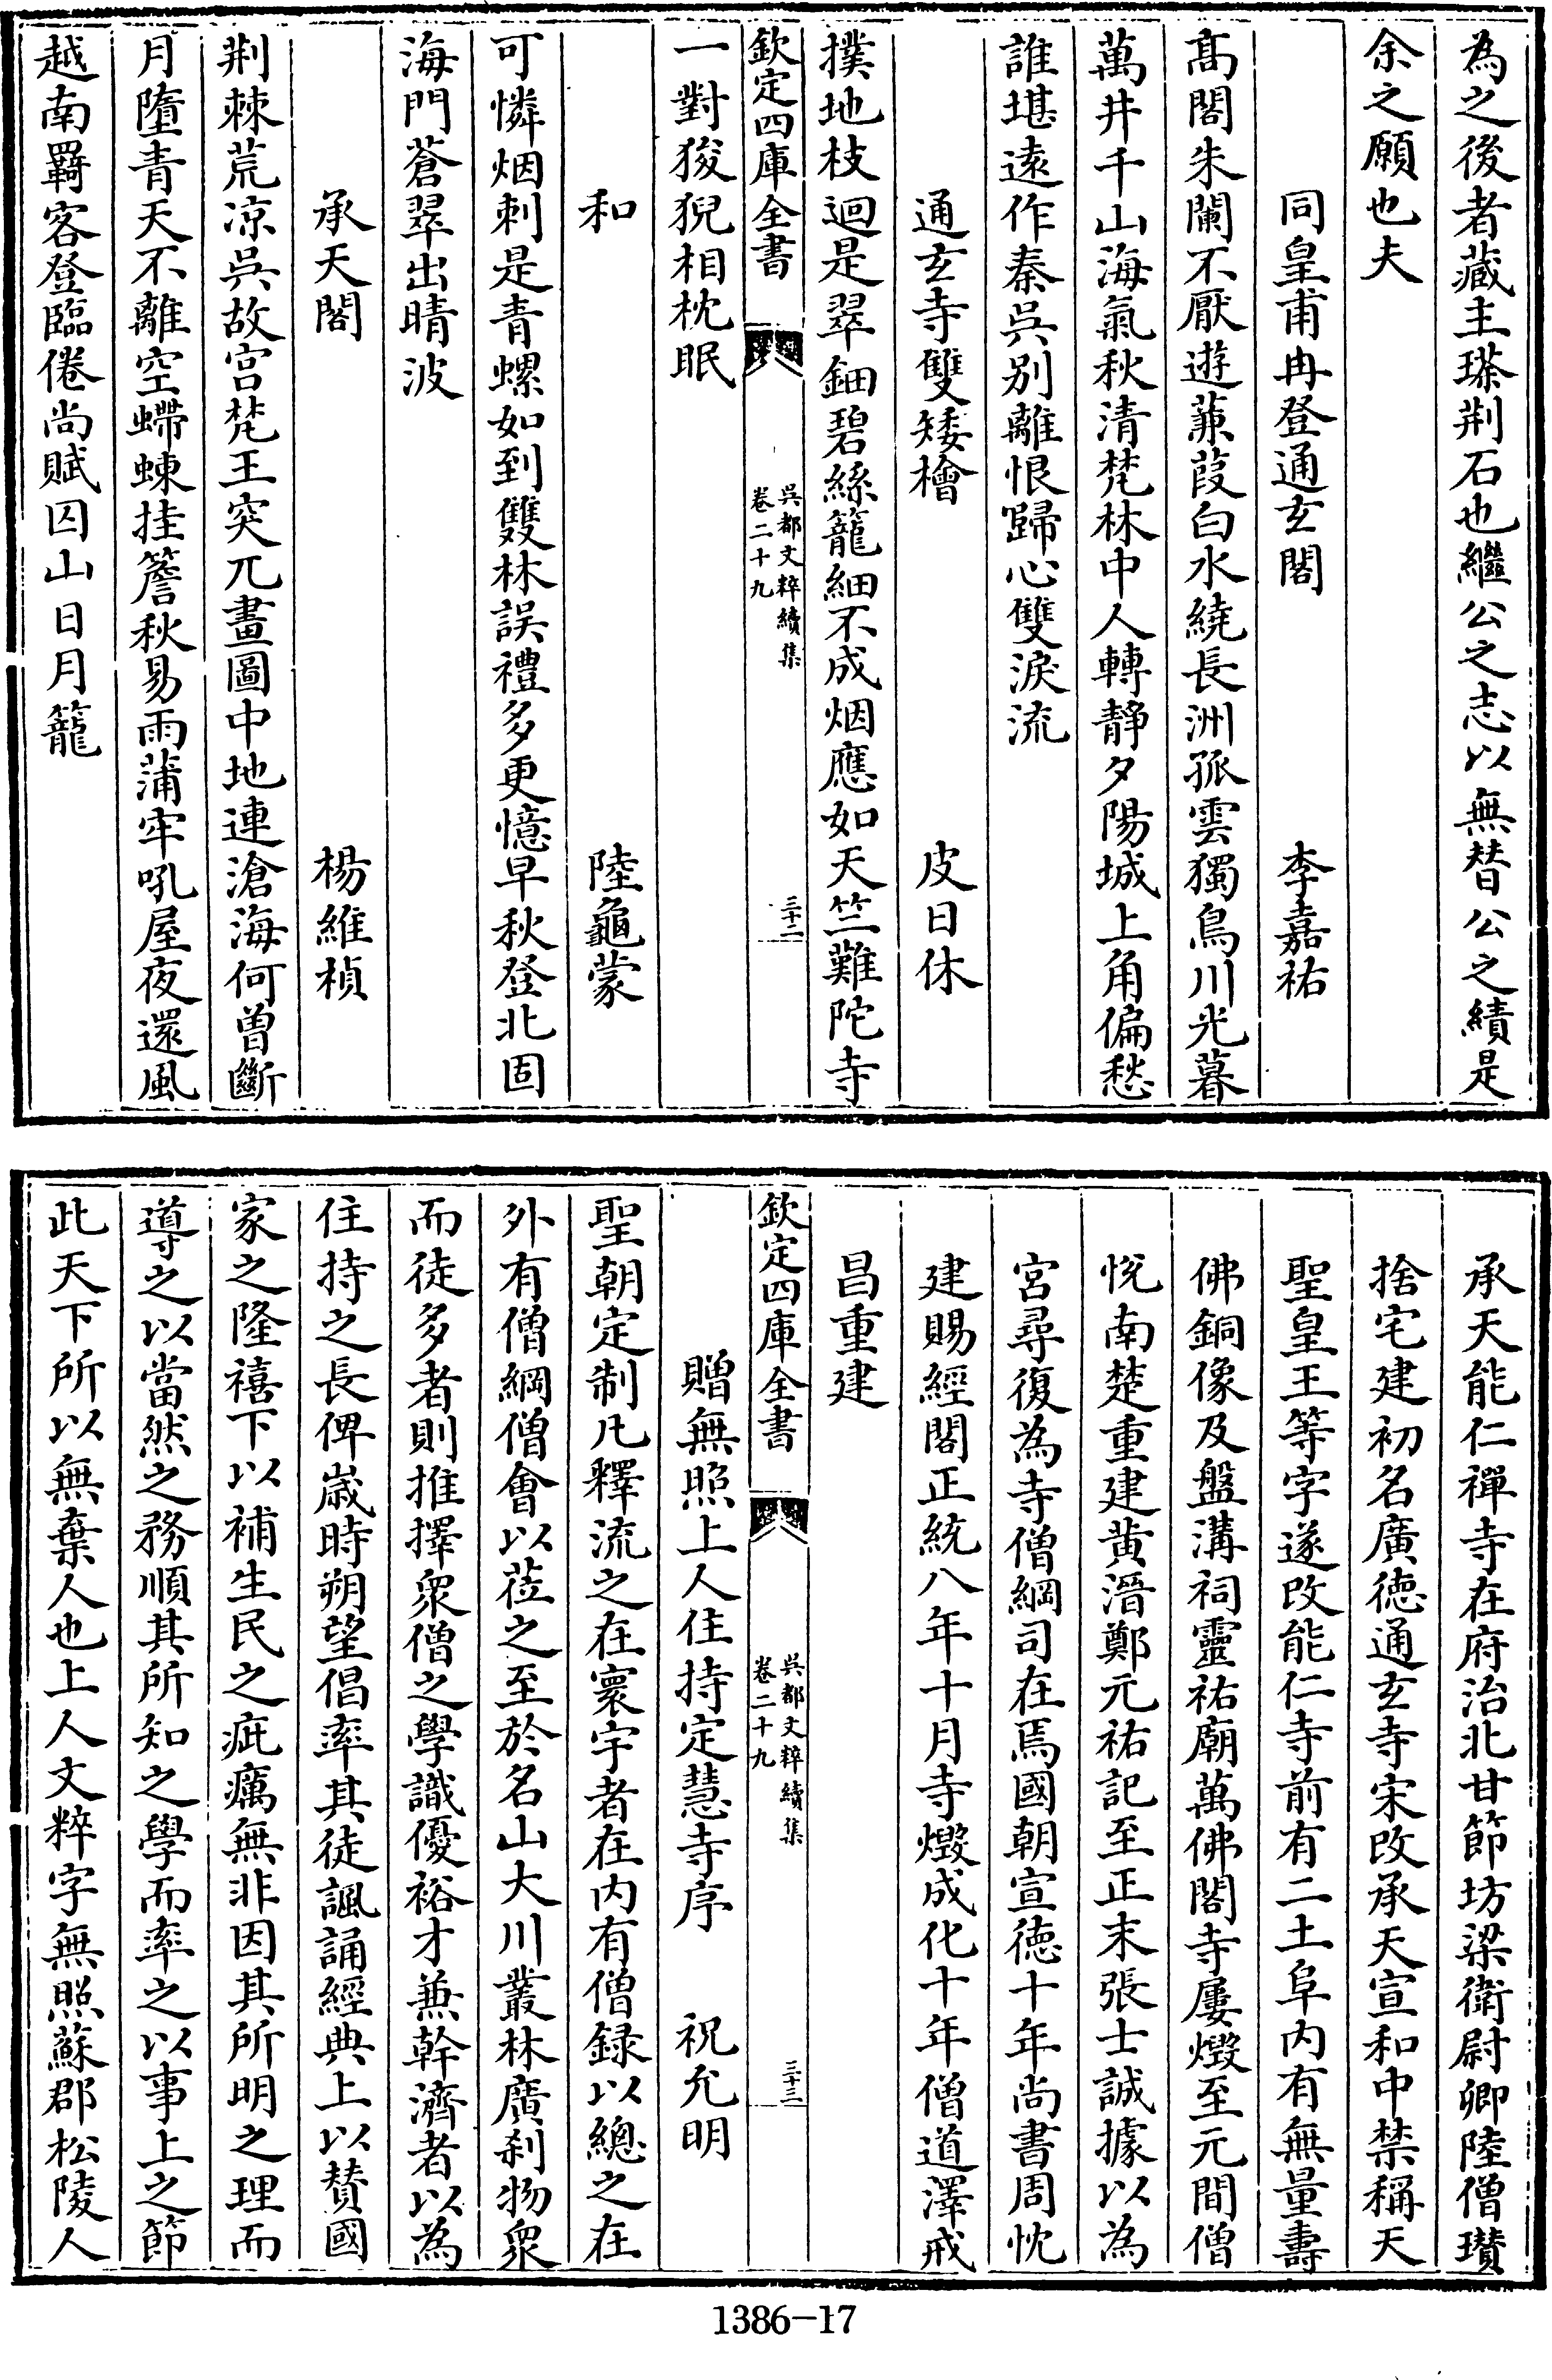 為之後者藏主琛荆石也繼公之志以無替公之績是
余之願也夫
同皇甫冉登通玄閣 李嘉祐
髙閣朱闌不厭遊蒹葭白水繞長洲孤雲獨鳥川光暮
萬井千山海氣秋清梵林中人轉静夕陽城上角偏愁
誰堪逺作秦吳别離恨歸心雙淚流
通玄寺雙矮檜 皮日休
撲地枝迴是翠鈿碧絲籠細不成烟應如天竺難陀寺
欽定四庫全書 吳都文粹續集 卷二十九 三十二
一對狻猊相枕眠
和 陸龜蒙
可憐烟刺是青螺如到雙林誤禮多更憶早秋登北固
海門蒼翠出晴波
承天閣 楊維楨
荆棘荒凉吳故宫梵王突兀畫圖中地連滄海何曾斷
月墮青天不離空螮蝀挂簷秋易雨蒲牢吼屋夜還風
越南羇客登臨倦尚賦囚山日月籠
承天能仁禪寺在府治北甘節坊梁衛尉卿陸僧瓚
捨宅建初名廣徳通玄寺宋改承天宣和中禁稱天
聖皇王等字遂改能仁寺前有二土阜内有無量壽
佛銅像及盤溝祠靈祐廟萬佛閣寺屢燬至元間僧
悦南楚重建黄溍鄭元祐記至正末張士誠據以為
宮尋復為寺僧綱司在焉國朝宣徳十年尚書周忱
建賜經閣正統八年十月寺燬成化十年僧道澤戒
昌重建
欽定四庫全書 吳都文粹續集 卷二十九 三十三
贈無照上人住持定慧寺序 祝允明
聖朝定制凡釋流之在寰宇者在内有僧録以總之在
外有僧綱僧會以莅之至於名山大川叢林廣刹物衆
而徒多者則推擇衆僧之學識優裕才兼幹濟者以為
住持之長俾嵗時朔望倡率其徒諷誦經典上以賛國
家之隆禧下以補生民之疵癘無非因其所明之理而
導之以當然之務順其所知之學而率之以事上之節
此天下所以無棄人也上人文粹字無照蘇郡松陵人
1386-17